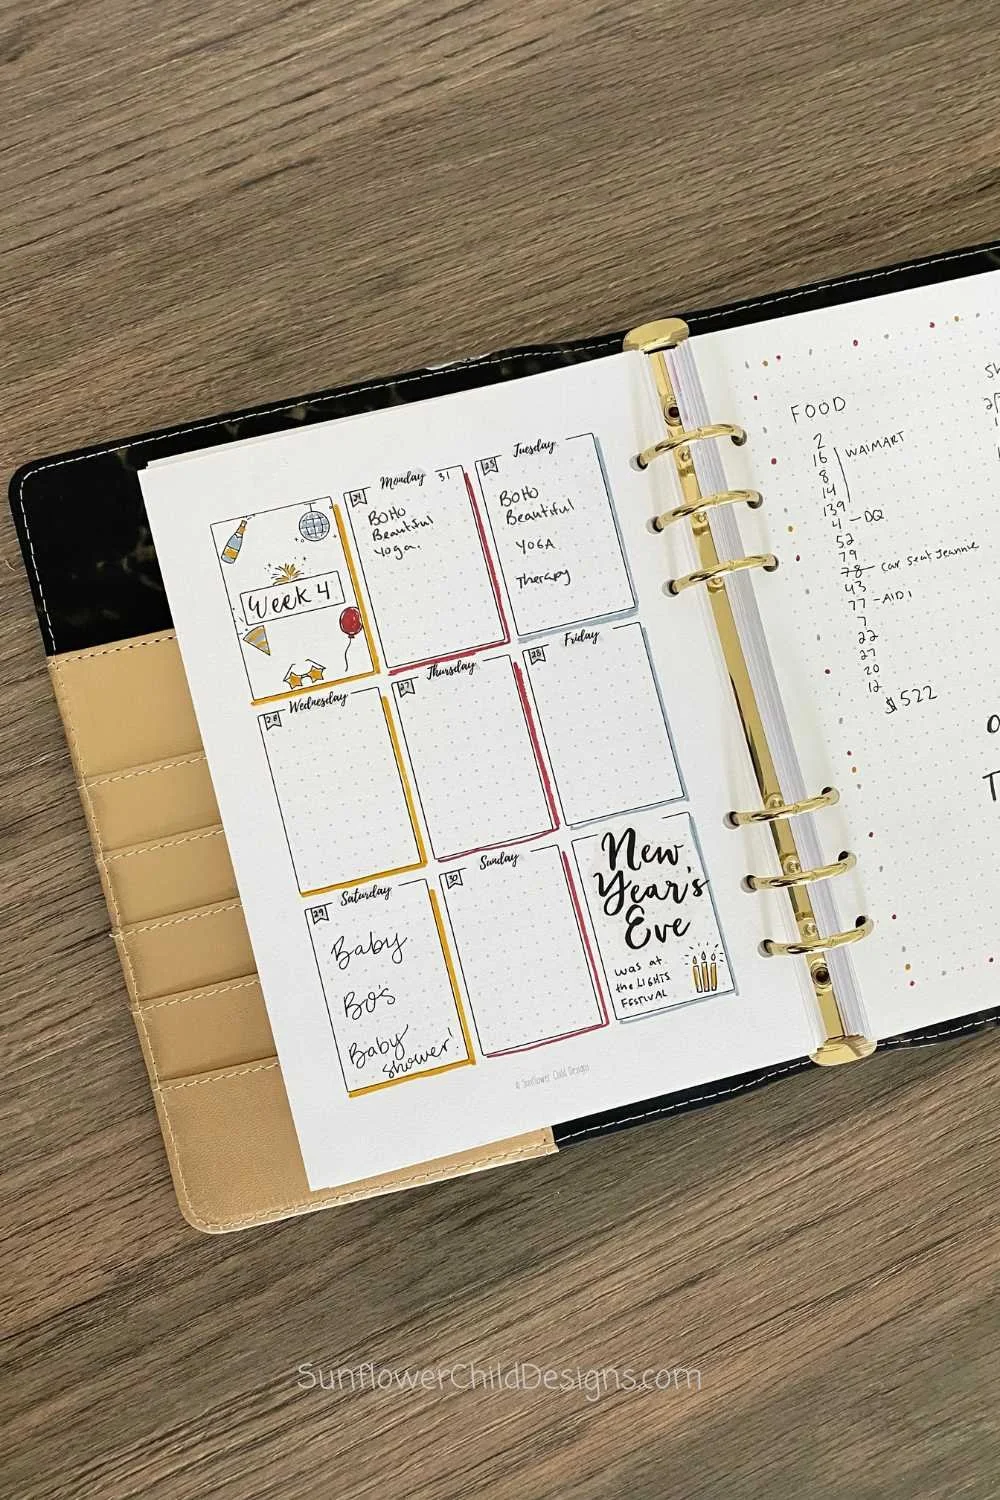 Week 4
24
Monday
31
BOHO
Beautiful
Yoga.
25
Tuesday
BOHO
Beautiful
YOGA
Therapy
Wednesday
27
Thursday
28
Friday
29
Saturday
Baby
Bo's
Baby
shower!
30
Sunday
New
Year's
Eve
was at
the LIGHTS
FESTIVAL
© Sunflower Child Designs
FOOD
2
16
WALMART
8
14
139
4 - DQ
52
79
78 - Car Seat Jeannie
43
77 - AIDI
7
22
27
20
12
$522
SunflowerChildDesigns.com